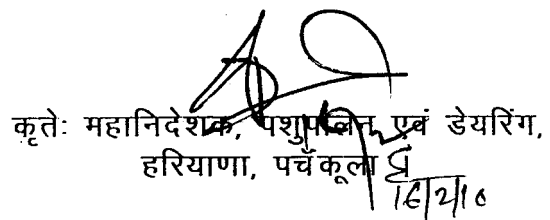 कृतेः महानिदेशक, पशुपालन एवं डेयरिंग,
हरियाणा, पचँकूला
16/2/10